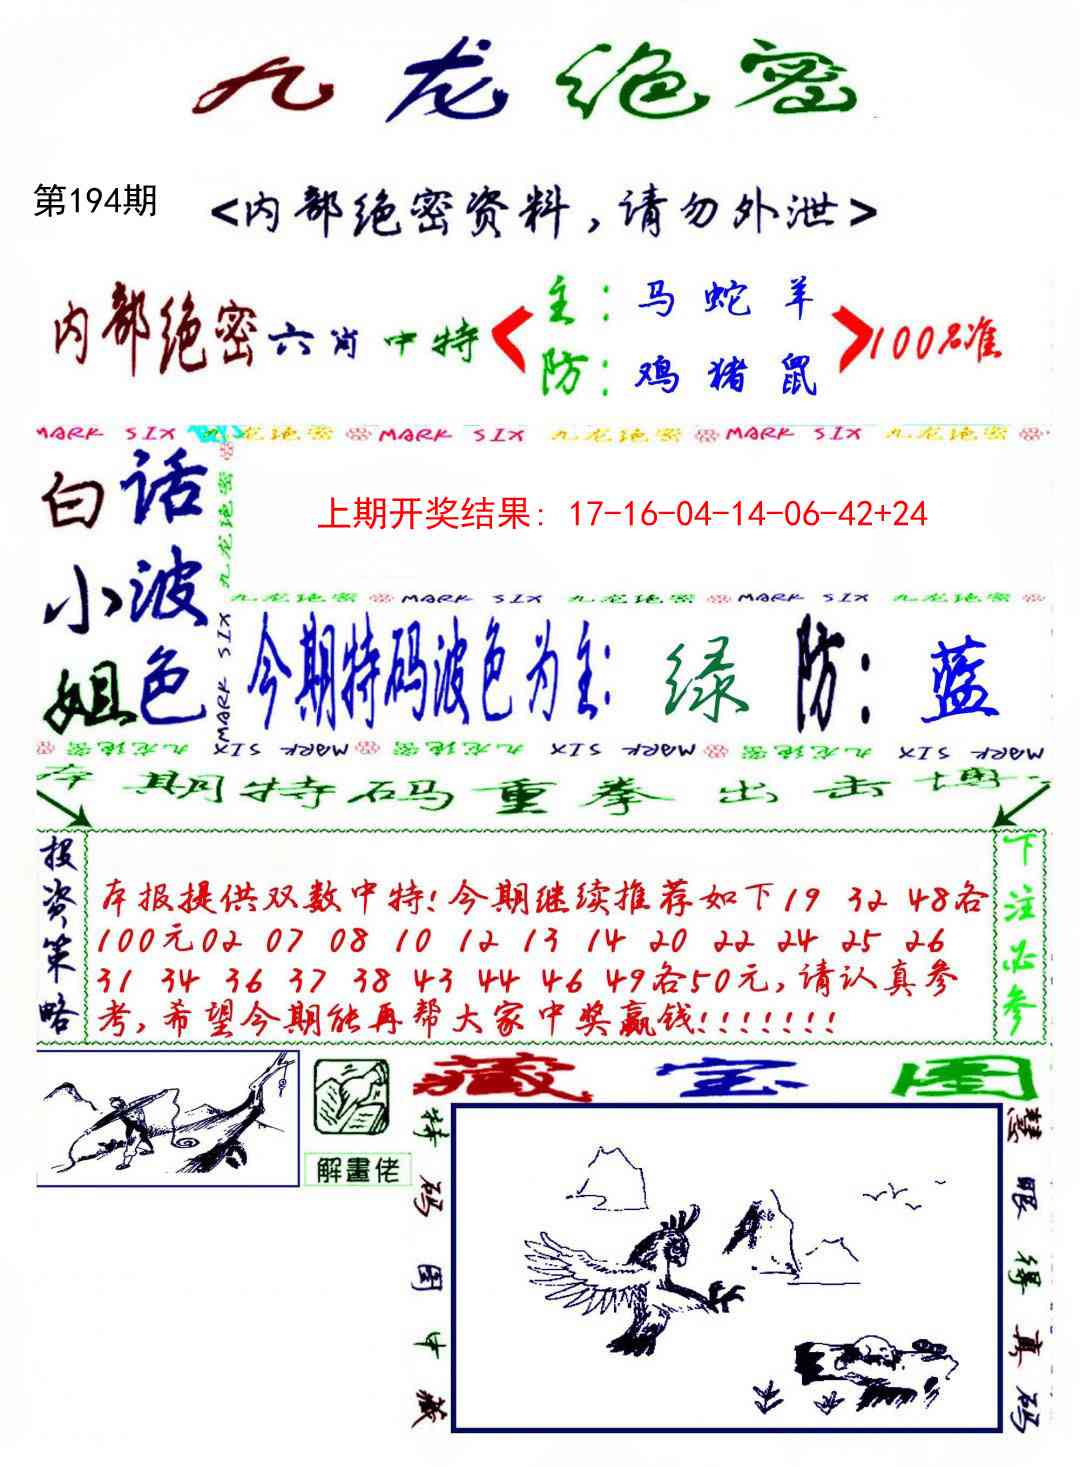 九龙绝密
第194期
<内部绝密资料,请勿外泄>
内部绝密六肖中特
主:马蛇羊
防:鸡猪鼠
100%准
MARK SIX 九龙绝密 MARK SIX 九龙绝密 MARK SIX 九龙绝密
白话
小波
姐色
九龙绝密
MARK SIX
上期开奖结果: 17-16-04-14-06-42+24
九龙绝密 MARK SIX 九龙绝密 MARK SIX 九龙绝密
今期特码波色为主: 绿 防: 蓝
九龙绝密 MARK SIX 九龙绝密 MARK SIX 九龙绝密 MARK SIX
本期特码重拳出击博
投资策略
本报提供双数中特!今期继续推荐如下19 32 48各
100元02 07 08 10 12 13 14 20 22 24 25 26
31 34 36 37 38 43 44 46 49各50元,请认真参
考,希望今期能再帮大家中奖赢钱!!!!!!!
下注必参
解畫佬
藏宝图
特码图中藏
慧眼得真码